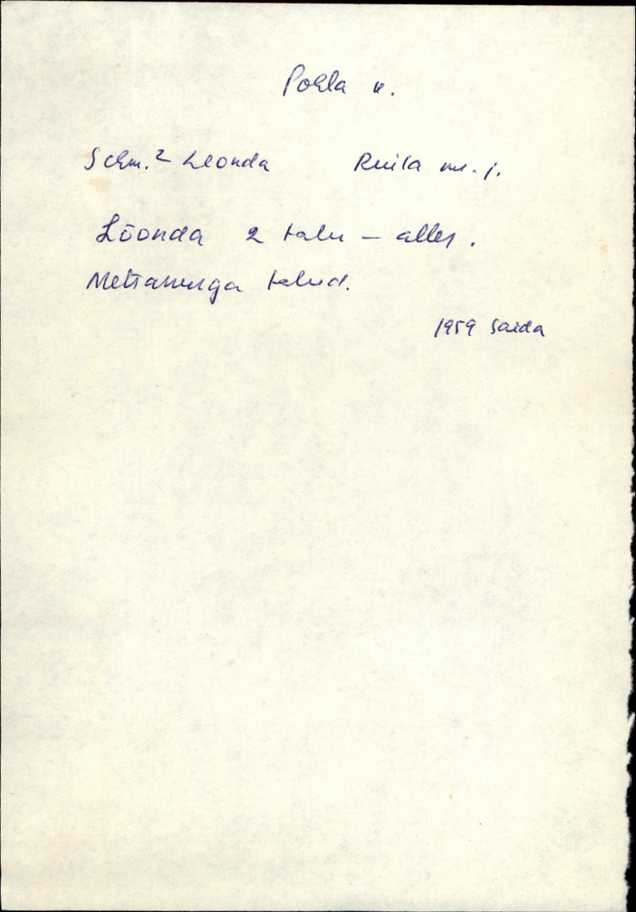 Pohla k.
Schm.² Leonda Ruila m. j.
Lõonda 2 talu – alles.
Metsanurga talud.
1959 Saida